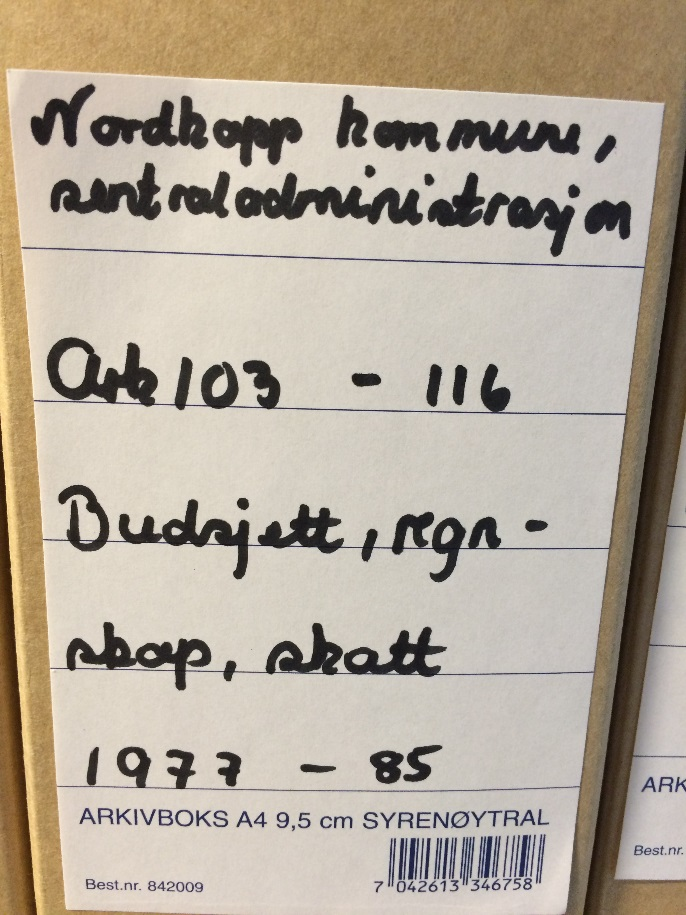 Nordkapp kommune,
sentraladministrasjon
Ark 103 - 116
Budsjett, regn-
skap, skatt
1977 - 85
ARKIVBOKS A4 9,5 cm SYRENØYTRAL
Best.nr. 842009
7 042613 346758
ARK
Best.nr.